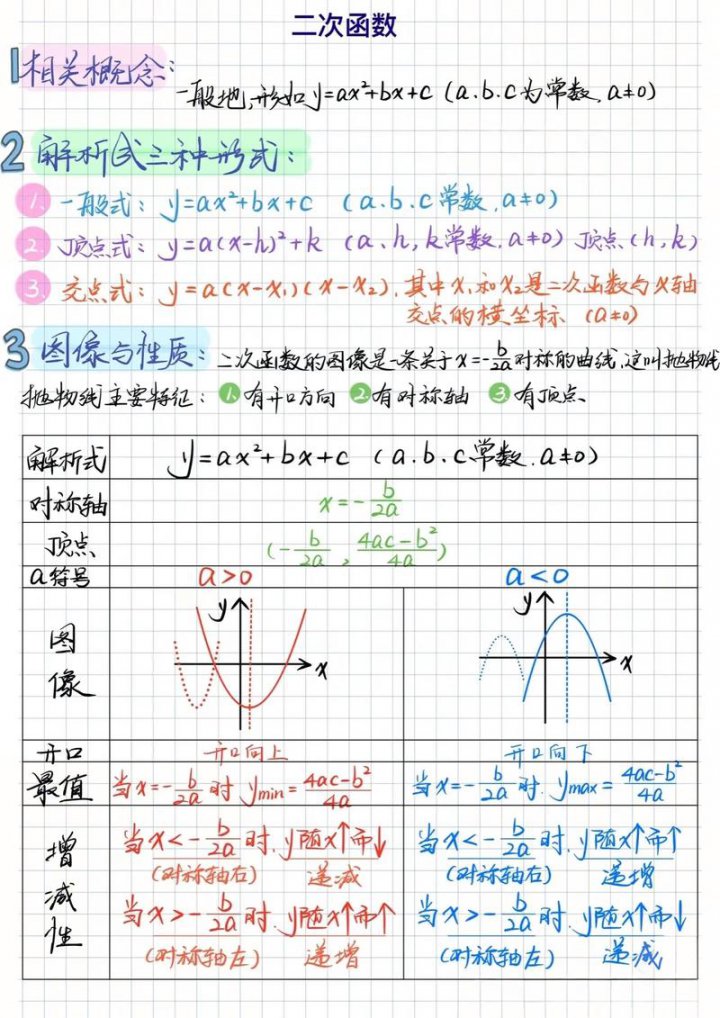 二次函数
1 相关概念:
一般地,形如y=ax²+bx+c (a.b.c为常数,a≠0)
2 解析式三种形式:
1 一般式: y=ax²+bx+c (a.b.c常数,a≠0)
2 顶点式: y=a(x-h)²+k (a、h,k常数,a≠0) 顶点(h,k)
3. 交点式: y=a(x-x₁)(x-x₂),其中x₁和x₂是二次函数与x轴
交点的横坐标、(a≠0)
3 图像与性质: 二次函数的图像是一条关于x=-b/2a对称的曲线,这叫抛物线
抛物线主要特征: 1.有开口方向 2.有对称轴 3.有顶点、
解析式 y=ax²+bx+c (a.b.c常数,a≠0)
对称轴 x=-b/2a
顶点 (-b/2a, 4ac-b²/4a)
a符号 a>0 a<0
图像 y x y x
开口 开口向上 开口向下
最值 当x=-b/2a时 ymin=4ac-b²/4a 当x=-b/2a时. ymax=4ac-b²/4a
增减性 当x<-b/2a时.y随x↑而↓ 当x<-b/2a时.y随x↑而↑
(对称轴右) 递减 (对称轴右) 递增
当x>-b/2a时.y随x↑而↑ 当x>-b/2a时.y随x↑而↓
(对称轴左) 递增 (对称轴左) 递减